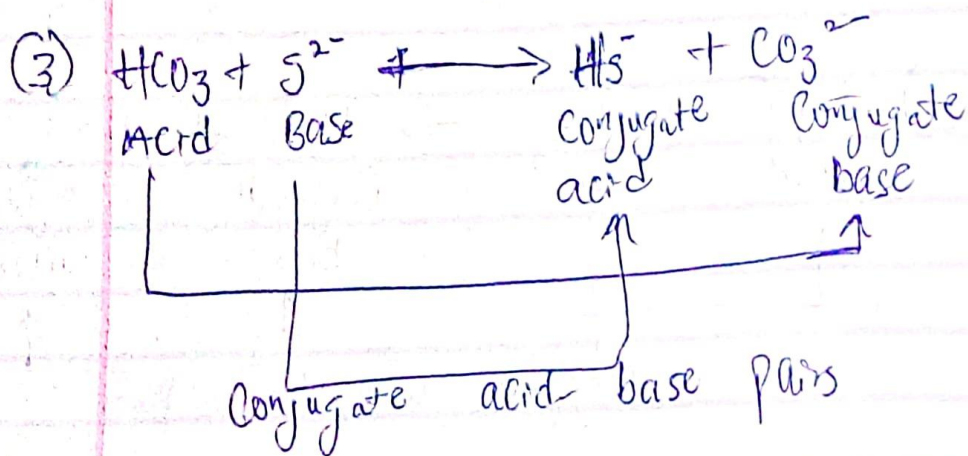 (3) HCO₃ + S²⁻ ⟷ HS⁻ + CO₃²⁻
Acid Base Conjugate Conjugate
acid base
Conjugate acid- base pairs